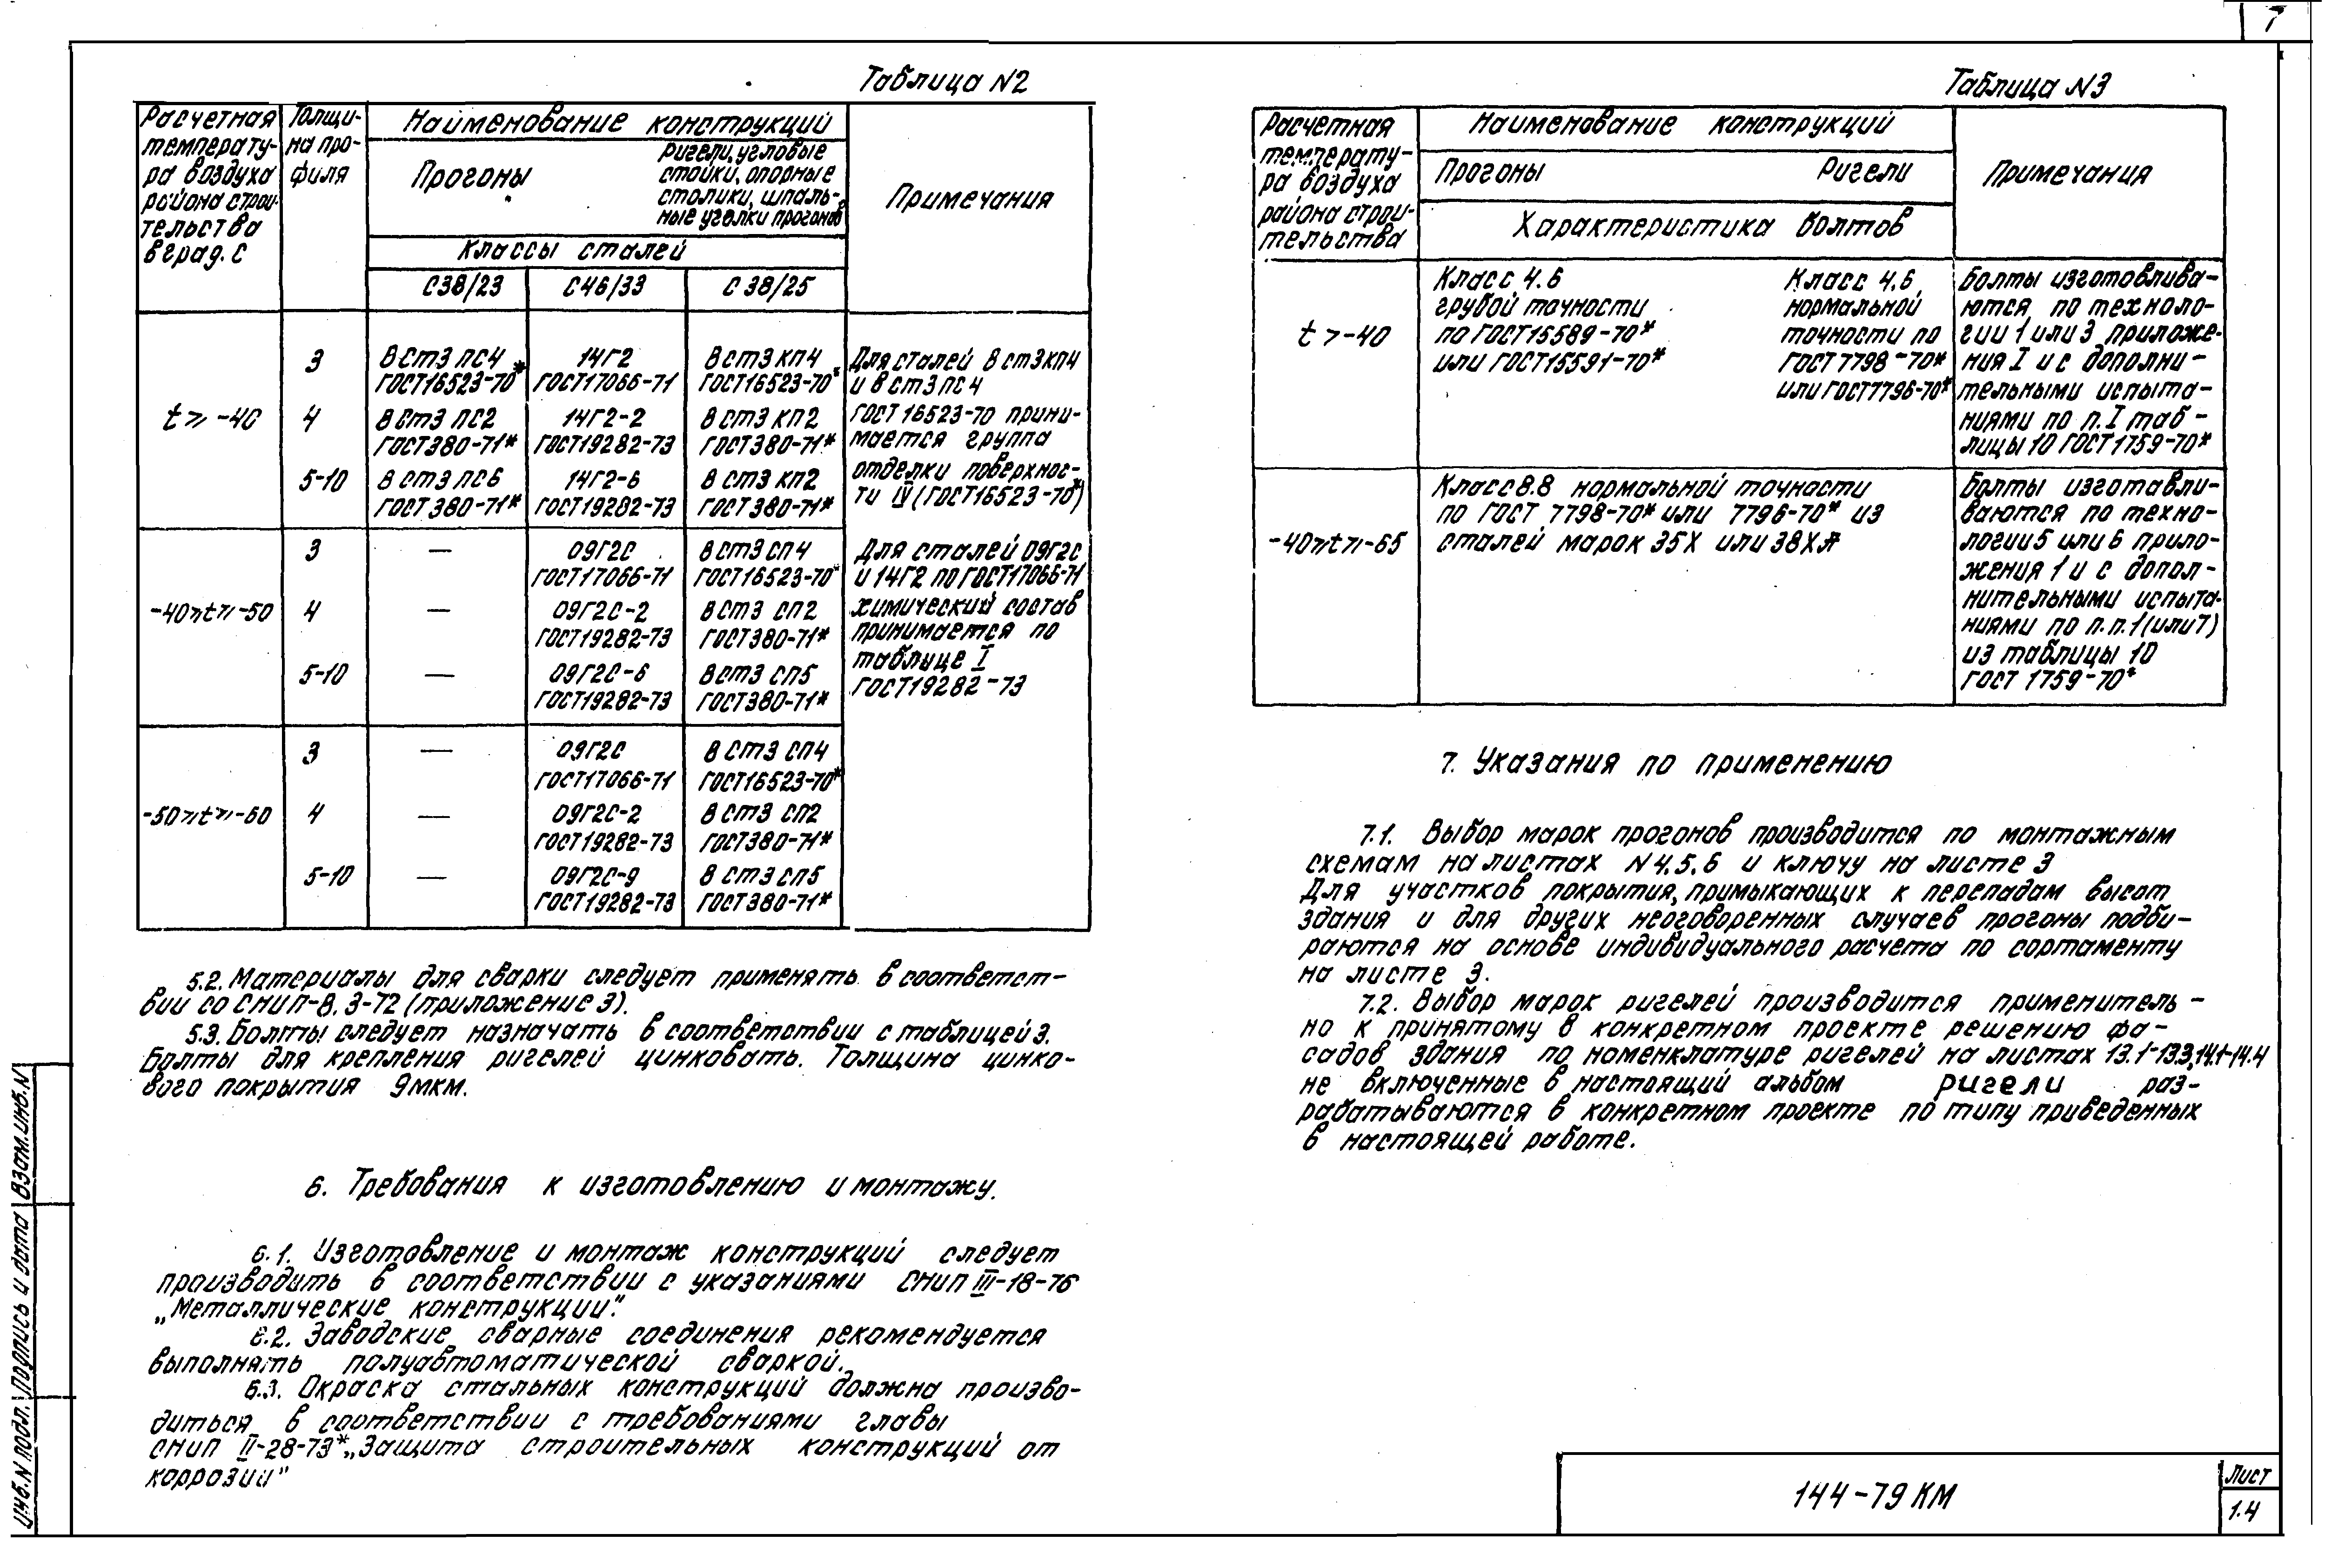 7
Таблица N2
Расчетная
температу-
ра воздуха
района строи-
тельства
в град. С
Толщи-
на про-
филя
Наименование конструкций
Прогоны
Ригели, угловые
стойки, опорные
столики, шпаль-
ные уголки прогонов
Классы сталей
С38/23 С46/33 С 38/25
Примечания
t ⩾ -40
3
В Ст3 пс4 14Г2 В ст3 кп4
ГОСТ16523-70* ГОСТ17066-71 ГОСТ16523-70*
4
В Ст3 пс2 14Г2-2 В Ст3 кп2
ГОСТ380-71* ГОСТ19282-73 ГОСТ380-71*
5-10
В ст3 пс6 14Г2-6 В ст3 кп2
ГОСТ380-71* ГОСТ19282-73 ГОСТ380-71*
Для сталей В ст3кп4
и в ст3 пс 4
ГОСТ 16523-70 прини-
мается группа
отделки поверхнос-
ти IV (ГОСТ16523-70*)
-40⩾t⩾-50
3 — 09Г2С В ст3 сп4
ГОСТ17066-71 ГОСТ16523-70*
4 — 09Г2С-2 В ст3 сп2
ГОСТ19282-73 ГОСТ380-71*
5-10 — 09Г2С-6 В ст3 сп5
ГОСТ19282-73 ГОСТ380-71*
Для сталей 09Г2С
и 14Г2 по ГОСТ17066-71
химический состав
принимается по
таблице I
ГОСТ19282-73
-50⩾t⩾-60
3 — 09Г2С В Ст3 сп4
ГОСТ17066-71 ГОСТ16523-70*
4 — 09Г2С-2 В ст3 сп2
ГОСТ19282-73 ГОСТ380-71*
5-10 — 09Г2С-9 В ст3 сп5
ГОСТ19282-73 ГОСТ380-71*
5.2. Материалы для сварки следует применять в соответст-
вии со СНиП-В. 3-72 (приложение 3).
5.3. Болты следует назначать в соответствии с таблицей 3.
Болты для крепления ригелей цинковать. Толщина цинко-
вого покрытия 9мкм.
6. Требования к изготовлению и монтажу.
6.1. Изготовление и монтаж конструкций следует
производить в соответствии с указаниями СНиП III-18-76
„Металлические конструкции".
6.2. Заводские сварные соединения рекомендуется
выполнять полуавтоматической сваркой.
6.3. Окраска стальных конструкций должна произво-
диться в соответствии с требованиями главы
СНиП II-28-73* „Защита строительных конструкций от
коррозии"
Таблица N3
Расчетная
температу-
ра воздуха
района строи-
тельства
Наименование конструкций
Прогоны Ригели
Характеристика болтов
Примечания
t > -40
Класс 4.6
грубой точности
по ГОСТ15589-70*
или ГОСТ15591-70*
Класс 4.6
нормальной
точности по
ГОСТ 7798-70*
или ГОСТ7796-70*
Болты изготовлива-
ются по техноло-
гии 1 или 3 приложе-
ния I и с дополни-
тельными испыта-
ниями по п. I таб-
лицы 10 ГОСТ1759-70*
-40⩾t⩾-65
Класс 8.8 нормальной точности
по ГОСТ 7798-70* или 7796-70* из
сталей марок 35Х или 38ХА
Болты изготавли-
ваются по техно-
логии 5 или 6 прило-
жения 1 и с допол-
нительными испыта-
ниями по п.п. 1 (или 7)
из таблицы 10
ГОСТ 1759-70*
7. Указания по применению
7.1. Выбор марок прогонов производится по монтажным
схемам на листах N 4, 5, 6 и ключу на листе 3
Для участков покрытия, примыкающих к перепадам высот
здания и для других неоговоренных случаев прогоны подби-
раются на основе индивидуального расчета по сортаменту
на листе 3.
7.2. Выбор марок ригелей производится применитель-
но к принятому в конкретном проекте решению фа-
садов здания по номенклатуре ригелей на листах 13.1-13.3, 14.1-14.4
не включенные в настоящий альбом ригели раз-
рабатываются в конкретном проекте по типу приведенных
в настоящей работе.
Инв.N подл. Подпись и дата Взам.инв.N
144-79 КМ
Лист
1.4